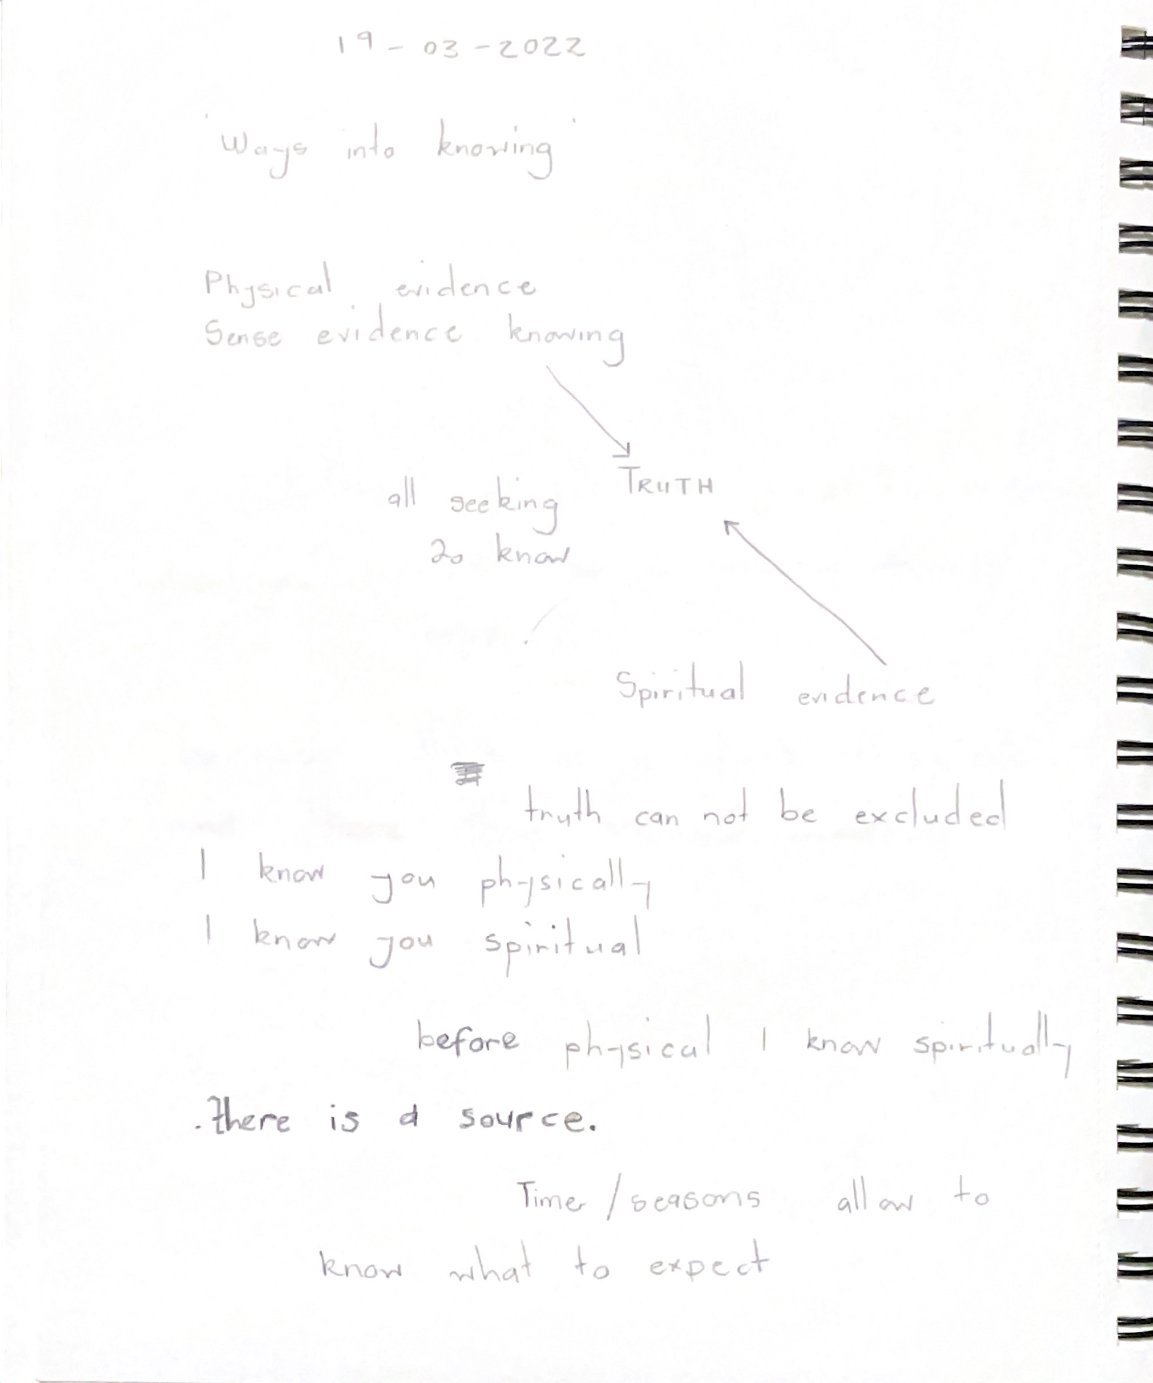 19-03-2022
'Ways into knowing'
Physical evidence
Sense evidence knowing
TRUTH
all seeking
to know
Spiritual evidence
truth can not be excluded
I know you physically
I know you spiritual
before physical I know spiritually
.there is a source.
Time/seasons allow to
know what to expect